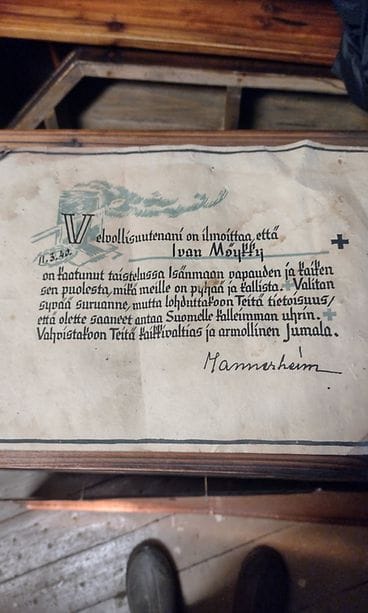 Velvollisuutenani on ilmoittaa, että
Ivan Möykky
11.3.40.
on kaatunut taistelussa Isänmaan vapauden ja kaiken
sen puolesta, mikä meille on pyhää ja kallista. Valitan
syvää suruanne, mutta lohduttakoon Teitä tietoisuus,
että olette saaneet antaa Suomelle kalleimman uhrin.
Vahvistakoon Teitä kaikkivaltias ja armollinen Jumala.
Mannerheim